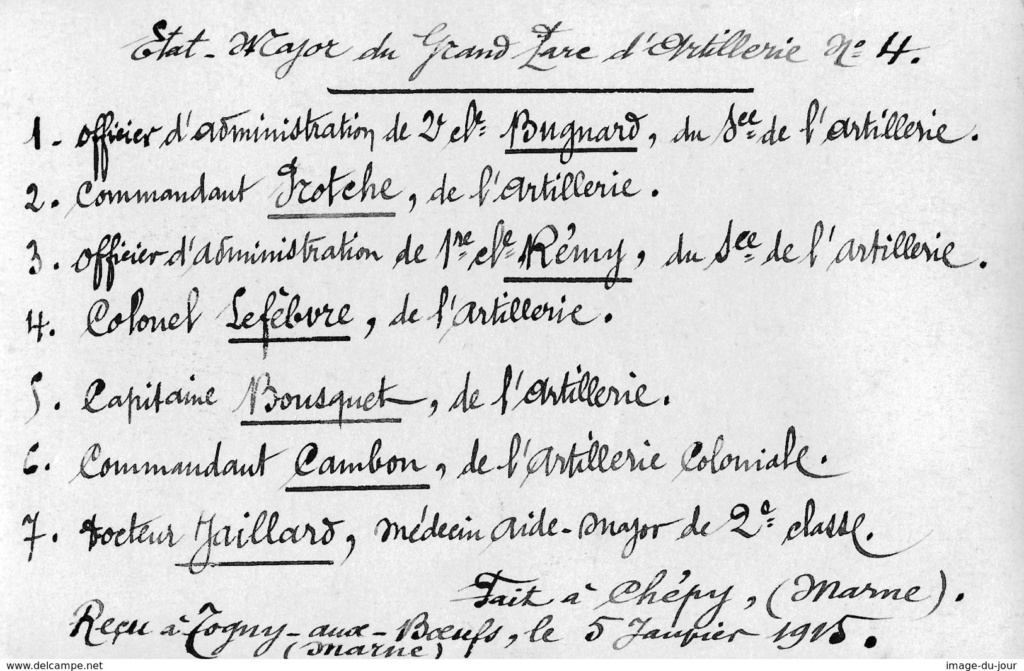 Etat-Major du Grand Parc d'Artillerie Nº 4.
1- officier d'administration de 2e cle Bugnard, du See de l'artillerie.
2. Commandant Protche, de l'Artillerie.
3. officier d'administration de 1re cle Rémy, du See de l'artillerie.
4. Colonel Lefèbvre, de l'artillerie.
5. Capitaine Bousquet, de l'Artillerie.
6. Commandant Cambon, de l'Artillerie Coloniale.
7. Docteur Jaillard, médecin aide-major de 2e classe.
Fait à Chépy, (Marne).
Reçu à Togny-aux-Bœufs, le 5 Janvier 1915.
(Marne)
www.delcampe.net
image-du-jour